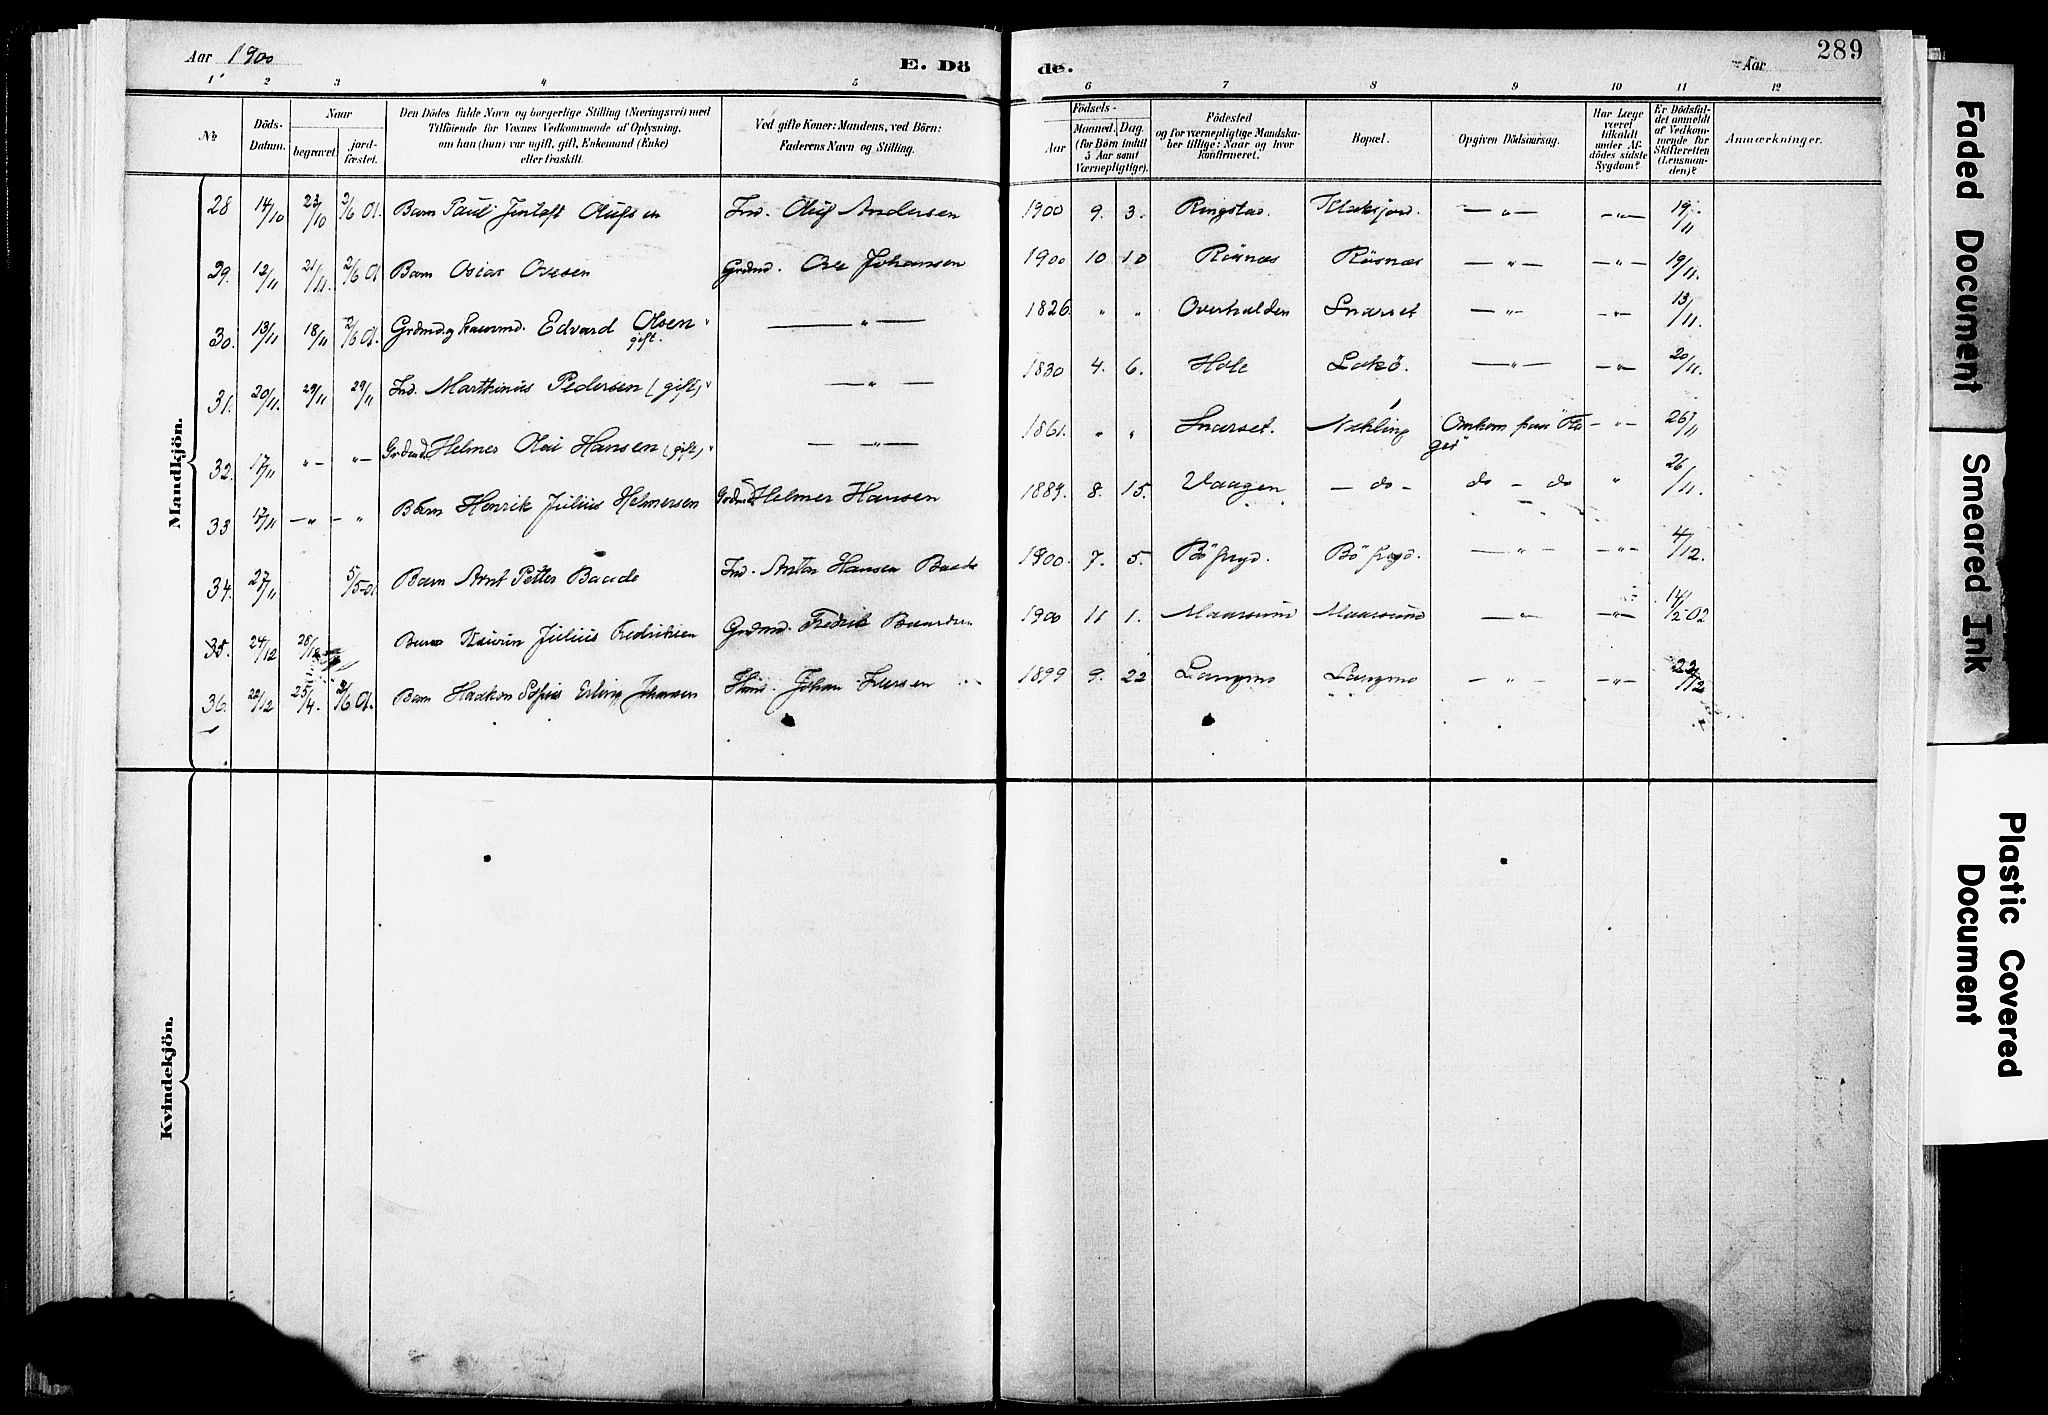 Aar 1900 E. Dö de. Aar 289
1 2 3 4 5 6 7 8 9 10 11 12
№ Döds-Datum. Naar begravet. jord-fæstet. Den Dödes fulde Navn og borgerlige Stilling (Næringsvei) med Tilföiende for Voxnes Vedkommende af Oplysning, om han (hun) var ugift, gift, Enkemand (Enke) eller fraskilt. Ved gifte Koner: Mandens, ved Börn: Faderens Navn og Stilling. Födsels- Aar Maaned. Dag. (for Börn indtil 5 Aar samt Værnepligtige). Födested og for værnepligtige Mandska-ber tillige: Naar og hvor konfirmeret. Bopæl. Opgiven Dödsaarsag. Har Læge været tilkaldt under Af-dödes sidste Sygdom? Er Dödsfal-det anmeldt af Vedkom-mende for Skifteretten (Lensman-den)? Anmærkninger.
Mandkjön.
28 14/10 23/10 2/6 01. Barn Paul Olufsen Ind. Oluf Andersen 1900 9. 3. Ringstad. — " — — " — 19/11
29. 12/11 21/11 2/6 01 Barn Oscar Ovesen Grdmd. Ove Johansen 1900 10 10 Rösnæs Rösnæs — " — — " — 19/11.
30. 13/11 18/11 2/6 01. Grdmd. og Edvard Olsen gift. — " — 1826. " " Overhalden Snarset — " — — " — 13/11.
31. 20/11. 29/11 29/11 Ind. Marthinus Pedersen (gift) — " — 1830 4. 6. — " — — " — 20/11.
32. 17/11 " — " — Grdmd. Helmer Olai Hansen (gift) — " — 1861. " " Snarset. Nakling Omkom paa — " — 26/11
33 17/11 — " — " Barn Henrik Julius Helmersen Grdmd. Helmer Hansen 1884. 8. 15. Vaagen — do — do — do " 26/11.
34. 27/11 5/5-01 Barn Arnt Petter Baade Ind. Anton Hansen Baade 1900. 7. 5. — " — — " — 4/12.
35. 24/12 28/12 Barn Julius Fredriksen Grdmd. Fredrik 1900 11 1. Maarsund Maarsund — " — — " — 14/2-02
36. 22/12 25/4. 2/6 01. Barn Haakon Erling Johansen Johan Iversen 1899 9. 22 Langmo Langmo — " — — " — 22/12
Kvindekjön.
Faded Document
Smeared Ink
Plastic Covered
Document